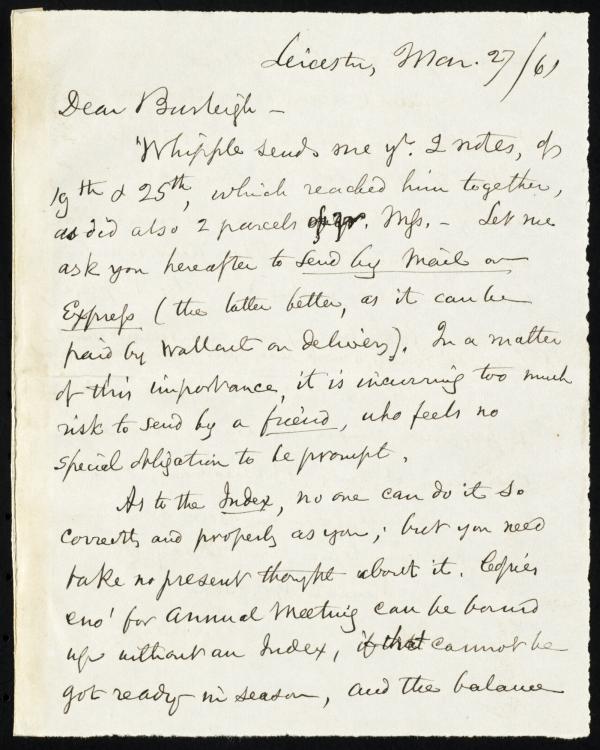 Leicester, Mar. 27/61
Dear Burleigh –
Whipple sends me yr. 2 notes, of
19th & 25th, which reached him together,
as did also 2 parcels of yr. Mss. – Let me
ask you hereafter to send by Mail or
Express (the latter better, as it can be
paid by Wallcut on delivery). In a matter
of this importance, it is incurring too much
risk to send by a friend, who feels no
special obligation to be prompt.
As to the Index, no one can do it so
correctly and properly as you; but you need
take no present thought about it. Copies
eno' for Annual Meeting can be bound
up without an Index, if that cannot be
got ready in season, and the balance